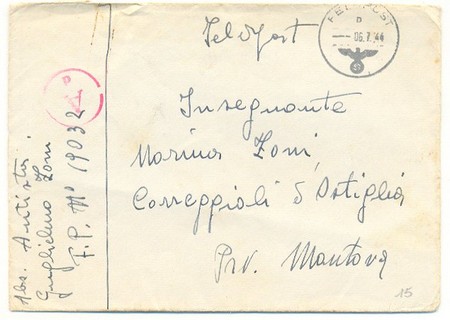 Feldpost
FELDPOST
D
06.7.44
Insegnante
Marina Zoni
Correggioli d'Ostiglia
Prv. Mantova
15
Abs. Autista
Guglielmo Zoni
F.P. Nº 19032